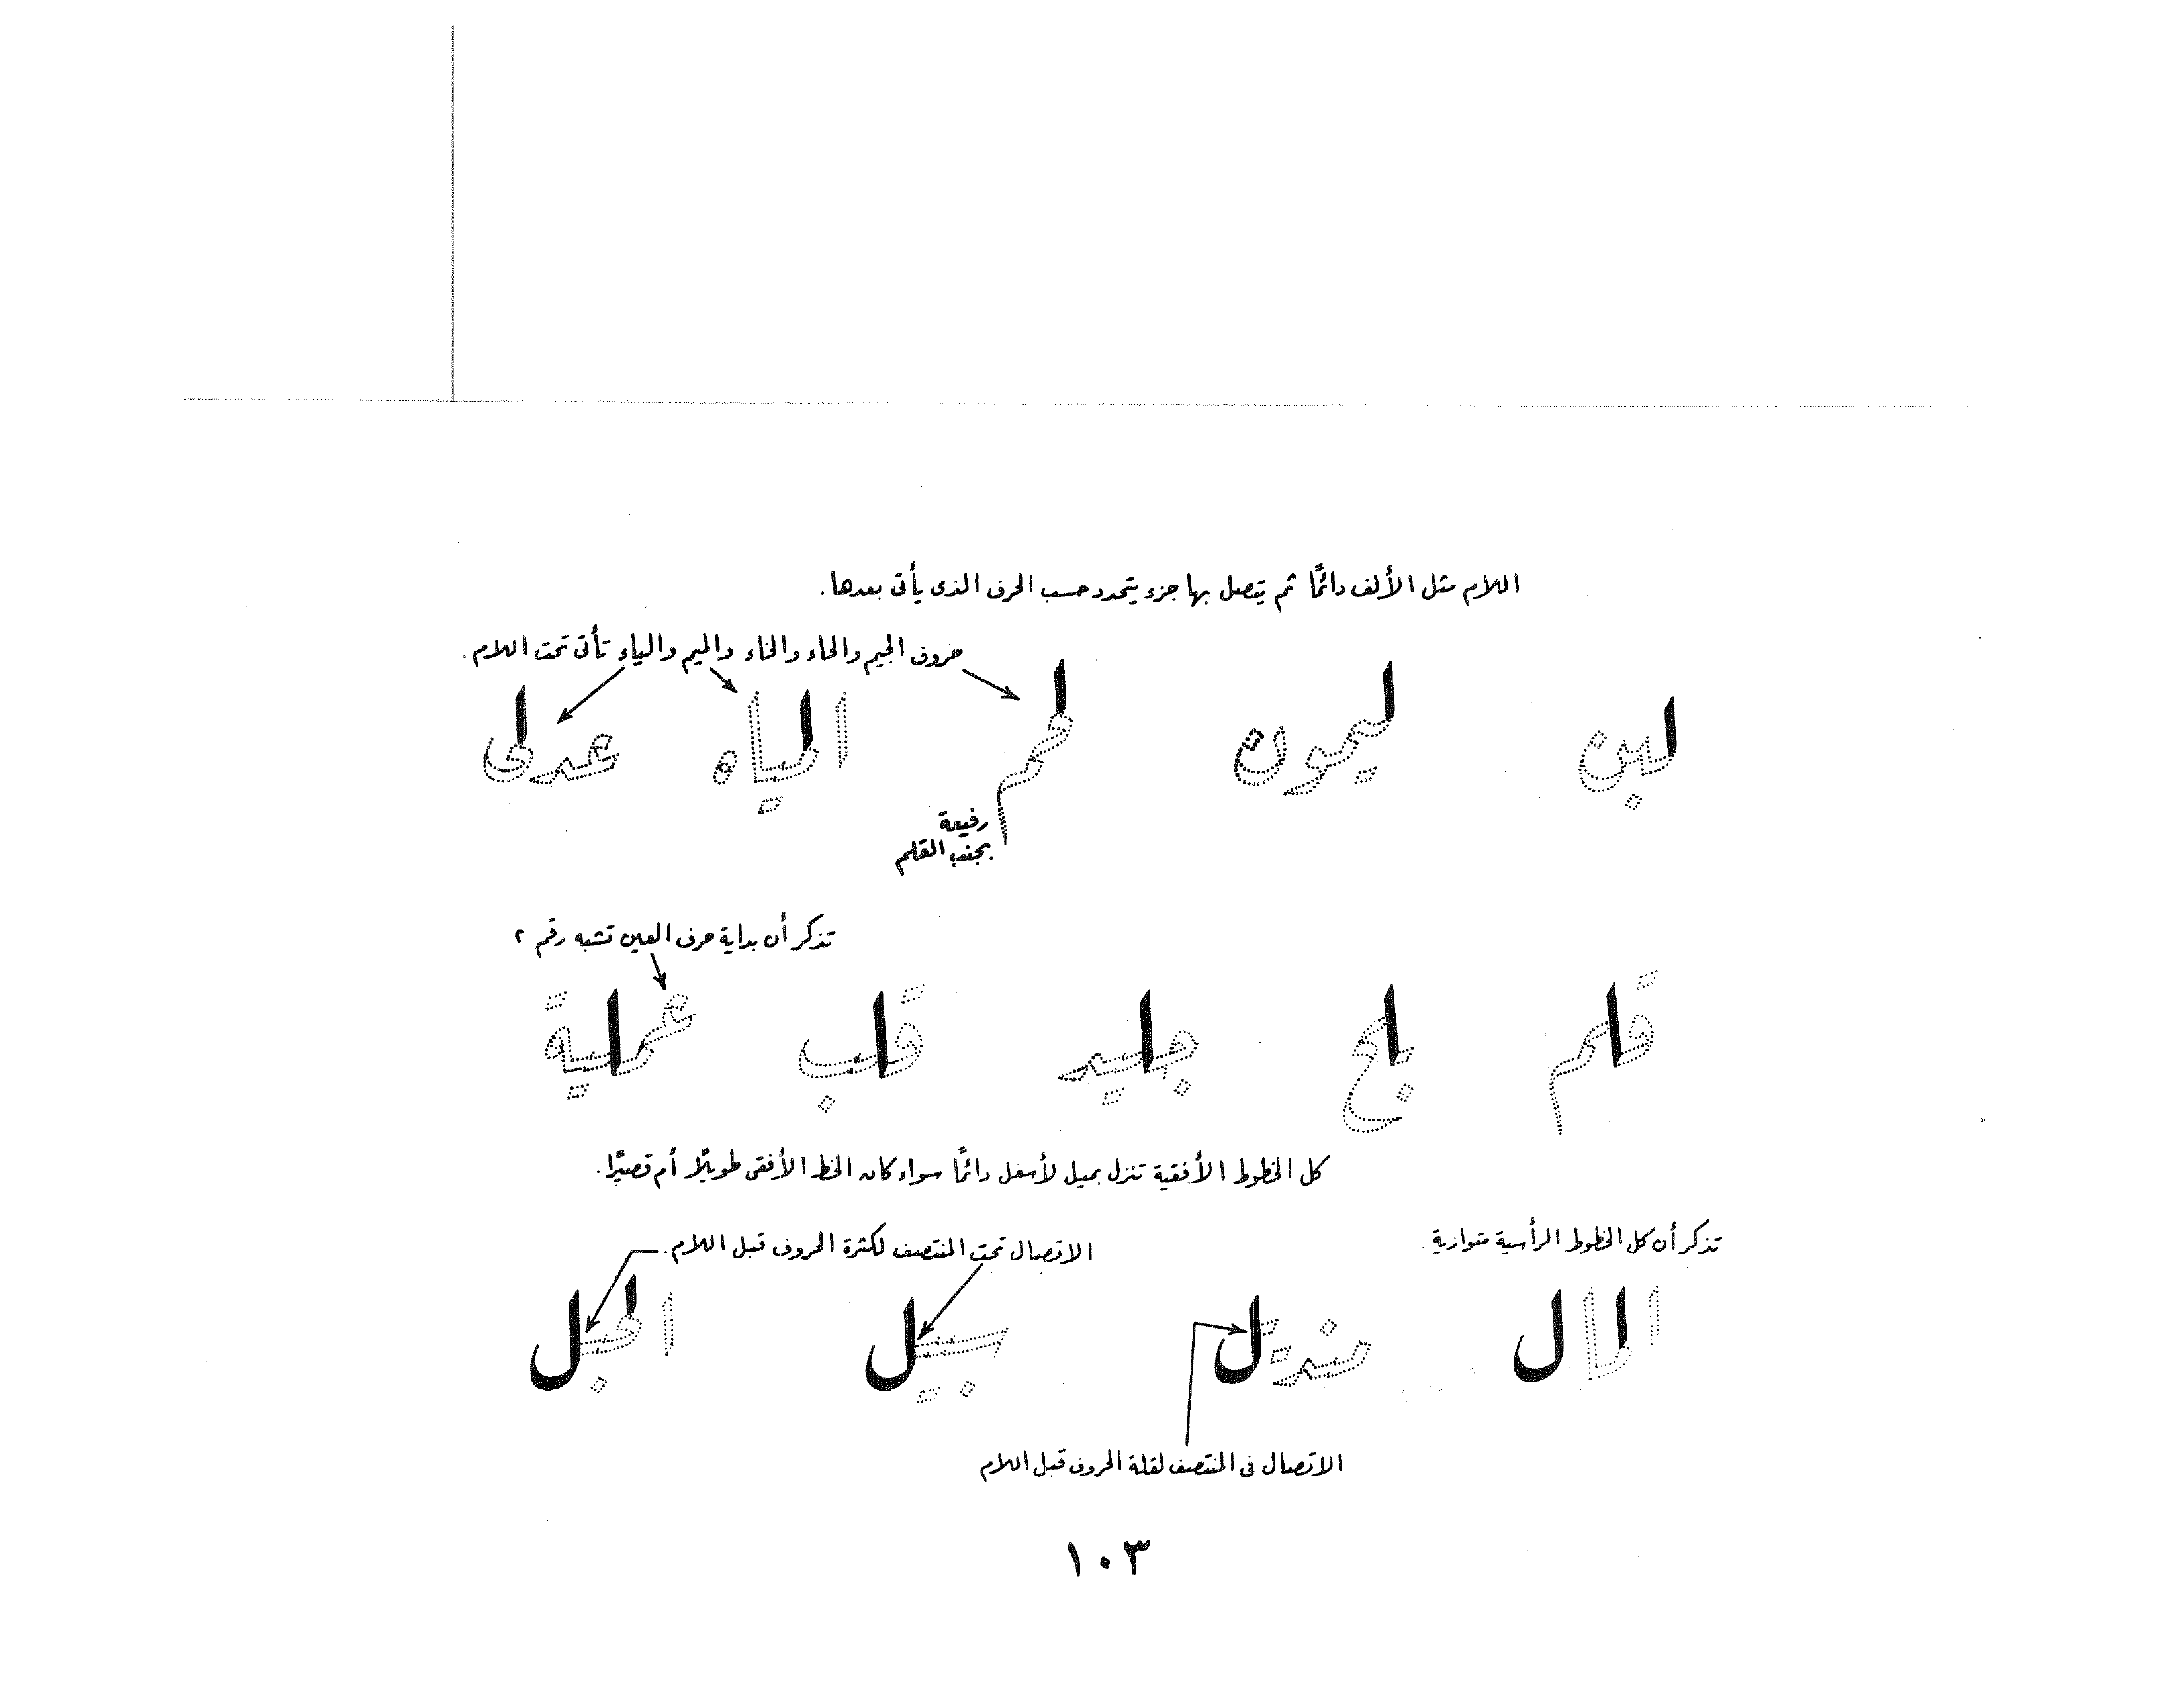 اللام مثل الألف دائمًا ثم يتصل بها جزء يتحدد حسب الحرف الذى يأتى بعدها.
حروف الجيم والحاء والخاء والميم والياء تأتى تحت اللام.
لبن ليمون لحم المياه عدلى
رفيعة
بجنب القلم
تذكر أن بداية حرف العين تشبه رقم ٢
قلم بلح جليد قلب عملية
كل الخطوط الأفقية تنزل بميل لأسفل دائمًا سواء كان الخط الأفقى طويلًا أم قصيرًا.
تذكر أن كل الخطوط الرأسية متوازية.
الاتصال تحت المنتصف لكثرة الحروف قبل اللام.
المال منديل سبيل الجبل
الاتصال فى المنتصف لقلة الحروف قبل اللام
١٠٣